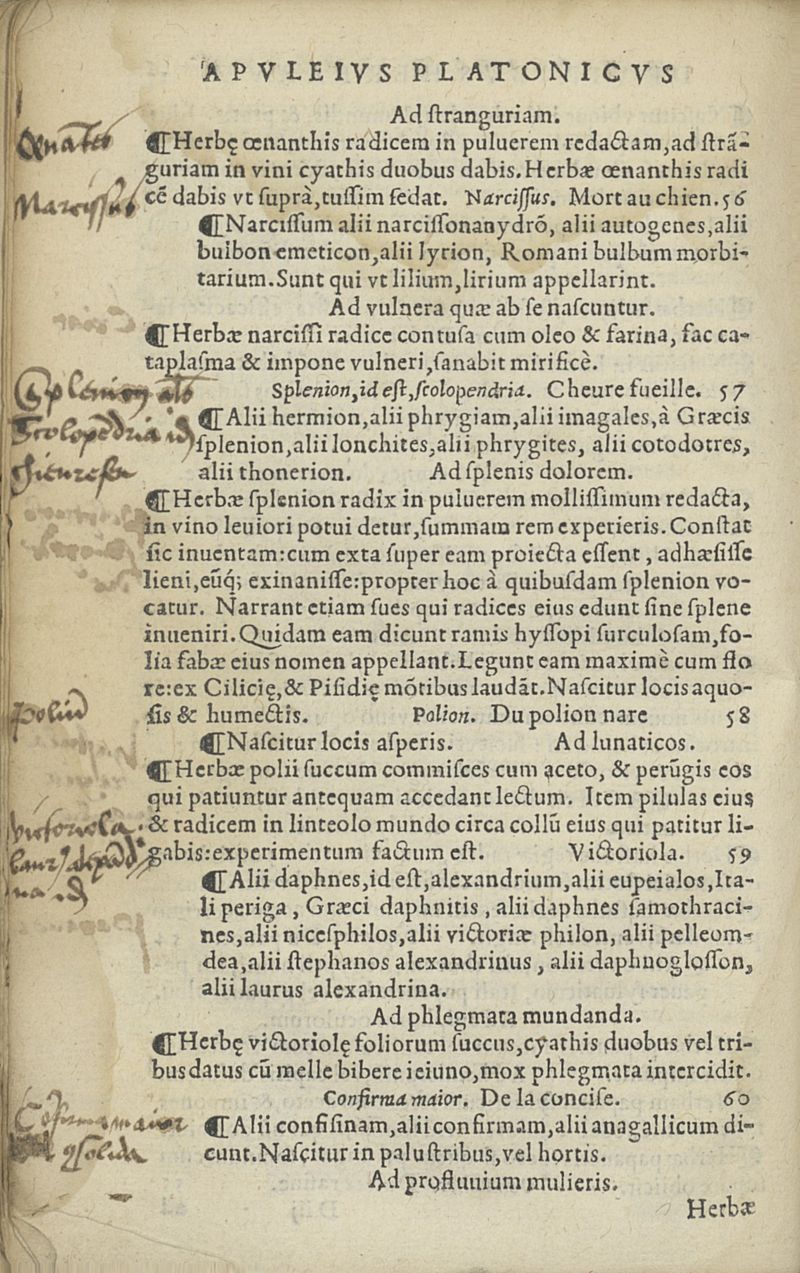 APVLEIVS PLATONICVS
Ad ſtranguriam.
¶Herbę œnanthis radicem in puluerem redactam,ad ſtrã-
guriam in vini cyathis duobus dabis.Herbæ œnanthis radi
cẽ dabis vt ſuprà,tuſſim ſedat. Narciſſus. Mort au chien.56
¶Narciſſum alii narciſſonanydrõ, alii autogenes,alii
bulbon emeticon,alii lyrion, Romani bulbum morbi-
tarium.Sunt qui vt lilium,lirium appellarint.
Ad vulnera quæ ab ſe naſcuntur.
¶Herbæ narciſſi radice contuſa cum oleo & farina, fac ca-
taplaſma & impone vulneri,ſanabit mirificè.
Splenion,id eſt,ſcolopendria. Cheure fueille. 57
¶Alii hermion,alii phrygiam,alii imagales,à Græcis
ſplenion,alii lonchites,alii phrygites, alii cotodotres,
alii thonerion. Ad ſplenis dolorem.
¶Herbæ ſplenion radix in puluerem molliſſimum redacta,
in vino leuiori potui detur,ſummam rem experieris.Conſtat
ſic inuentam:cum exta ſuper eam proiecta eſſent, adhæſiſſe
lieni,eũq; exinaniſſe:propter hoc à quibuſdam ſplenion vo-
catur. Narrant etiam ſues qui radices eius edunt ſine ſplene
inueniri.Quidam eam dicunt ramis hyſſopi ſurculoſam,fo-
lia fabæ eius nomen appellant.Legunt eam maximè cum flo
re:ex Cilicię,& Piſidię mõtibus laudãt.Naſcitur locis aquo-
ſis & humectis. Polion. Du polion nare 58
¶Naſcitur locis aſperis. Ad lunaticos.
¶Herbæ polii ſuccum commiſces cum aceto, & perũgis eos
qui patiuntur antequam accedant lectum. Item pilulas eius
& radicem in linteolo mundo circa collũ eius qui patitur li-
gabis:experimentum factum eſt. Victoriola. 59
¶Alii daphnes,id eſt,alexandrium,alii eupeialos,Ita-
li periga, Græci daphnitis, alii daphnes ſamothraci-
nes,alii niceſphilos,alii victoriæ philon, alii pelleom-
dea,alii ſtephanos alexandrinus, alii daphnogloſſon,
alii laurus alexandrina.
Ad phlegmata mundanda.
¶Herbę victoriolę foliorum ſuccus,cyathis duobus vel tri-
bus datus cũ melle bibere ieiuno,mox phlegmata intercidit.
Confirma maior. De la conciſe. 60
¶Alii confiſinam,alii confirmam,alii anagallicum di-
cunt.Naſcitur in paluſtribus,vel hortis.
Ad profluuium mulieris.
Herbæ
Narciſſus